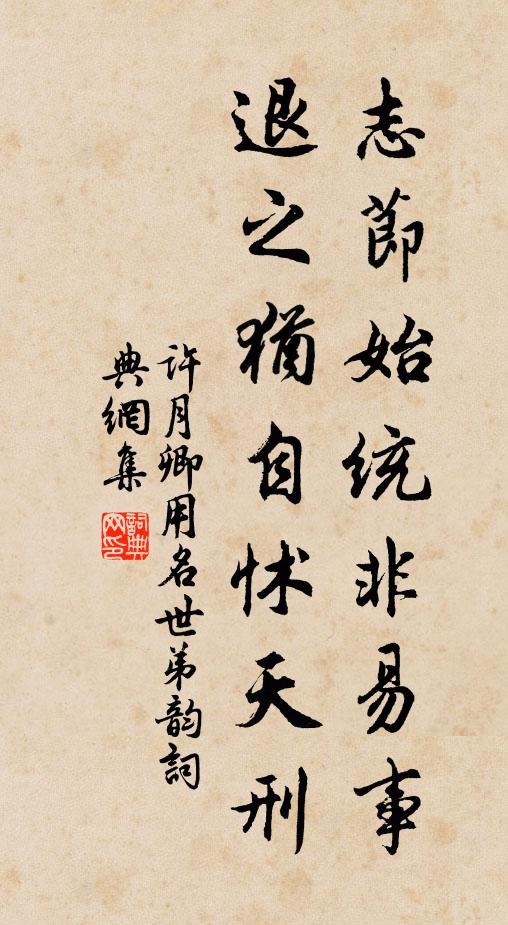 志節始統非易事
退之猶自怵天刑
許月卿用名世弟韵詞
典網集
詞典
网印